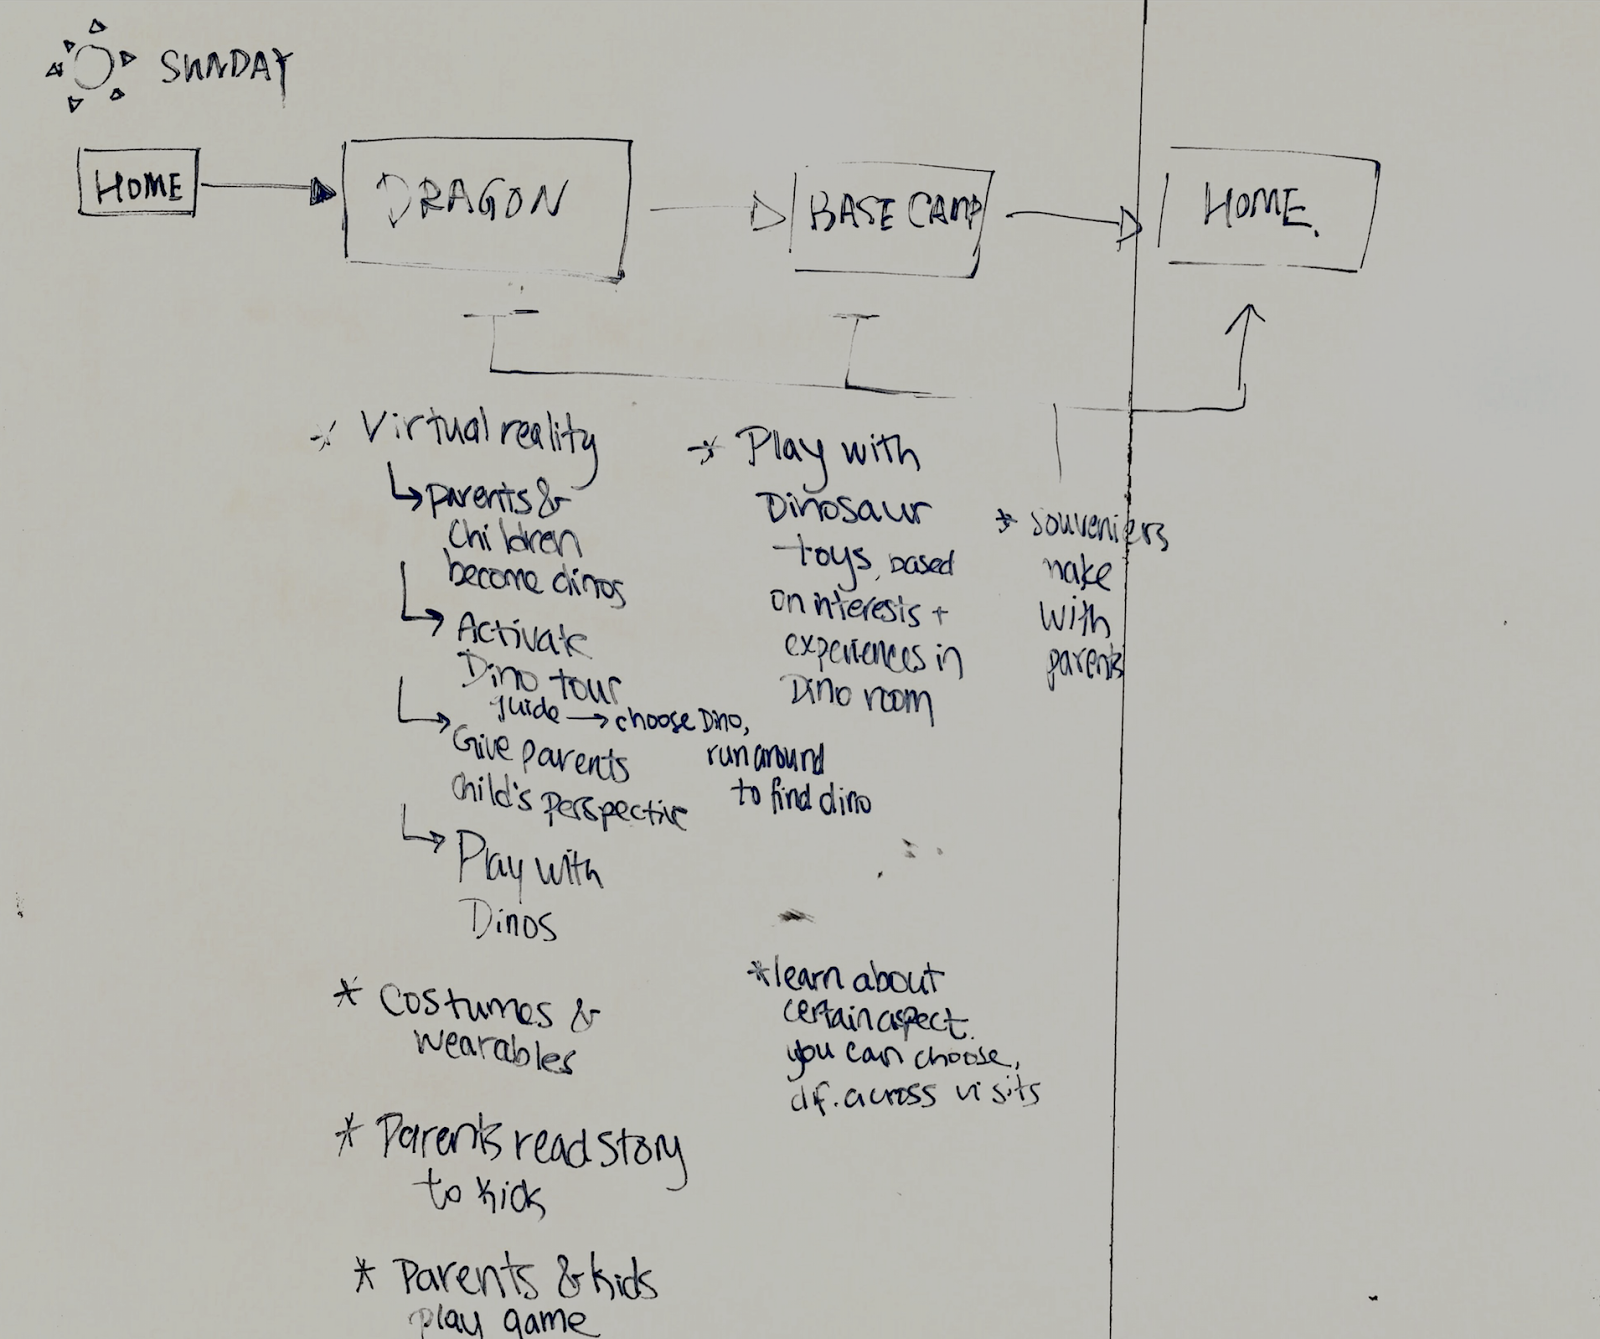 SUNDAY
HOME
DRAGON
BASE CAMP
HOME.
* Virtual reality
↳ parents &
children
become dinos
↳ Activate
Dino tour
guide → choose Dino,
run around
to find dino
↳ Give parents
child's perspective
↳ Play with
Dinos
* Costumes &
wearables
* Parents read story
to kids
* Parents & kids
play game
* Play with
Dinosaur
toys, based
on interests +
experiences in
Dino room
* learn about
certain aspect.
you can choose,
dif. across visits
* souveniers
make
with
parents